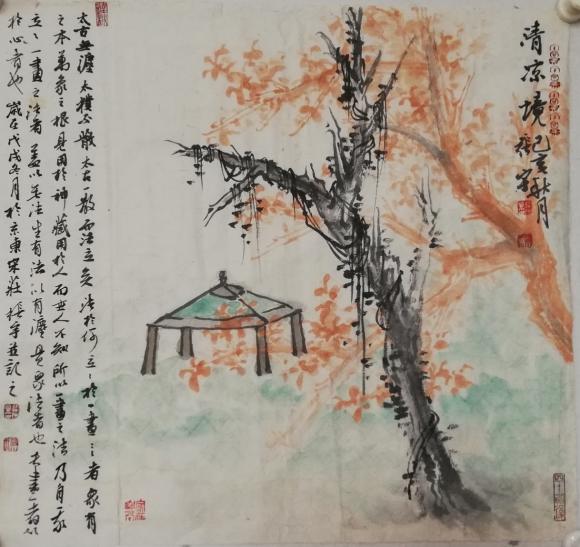 清凉境
己亥秋月
太古無灋太樸不散太古一散而法立矣法於何立〻於一畫〻者眾有
之本萬象之根見用於神藏用於人而世人不知所以一畫之法乃自我
立〻一畫之法者蓋以無法生有法以有灋貫眾法者也夫畫者
於心者也歲在戊戌冬月於京東宋莊並記之